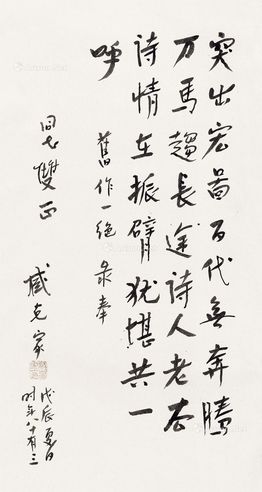 突出宏图百代无奔腾
万马趋长途诗人老去
诗情在振臂犹堪共一
呼
旧作一绝 录奉
同志双正
臧克家
戊辰夏日
时年八十有三